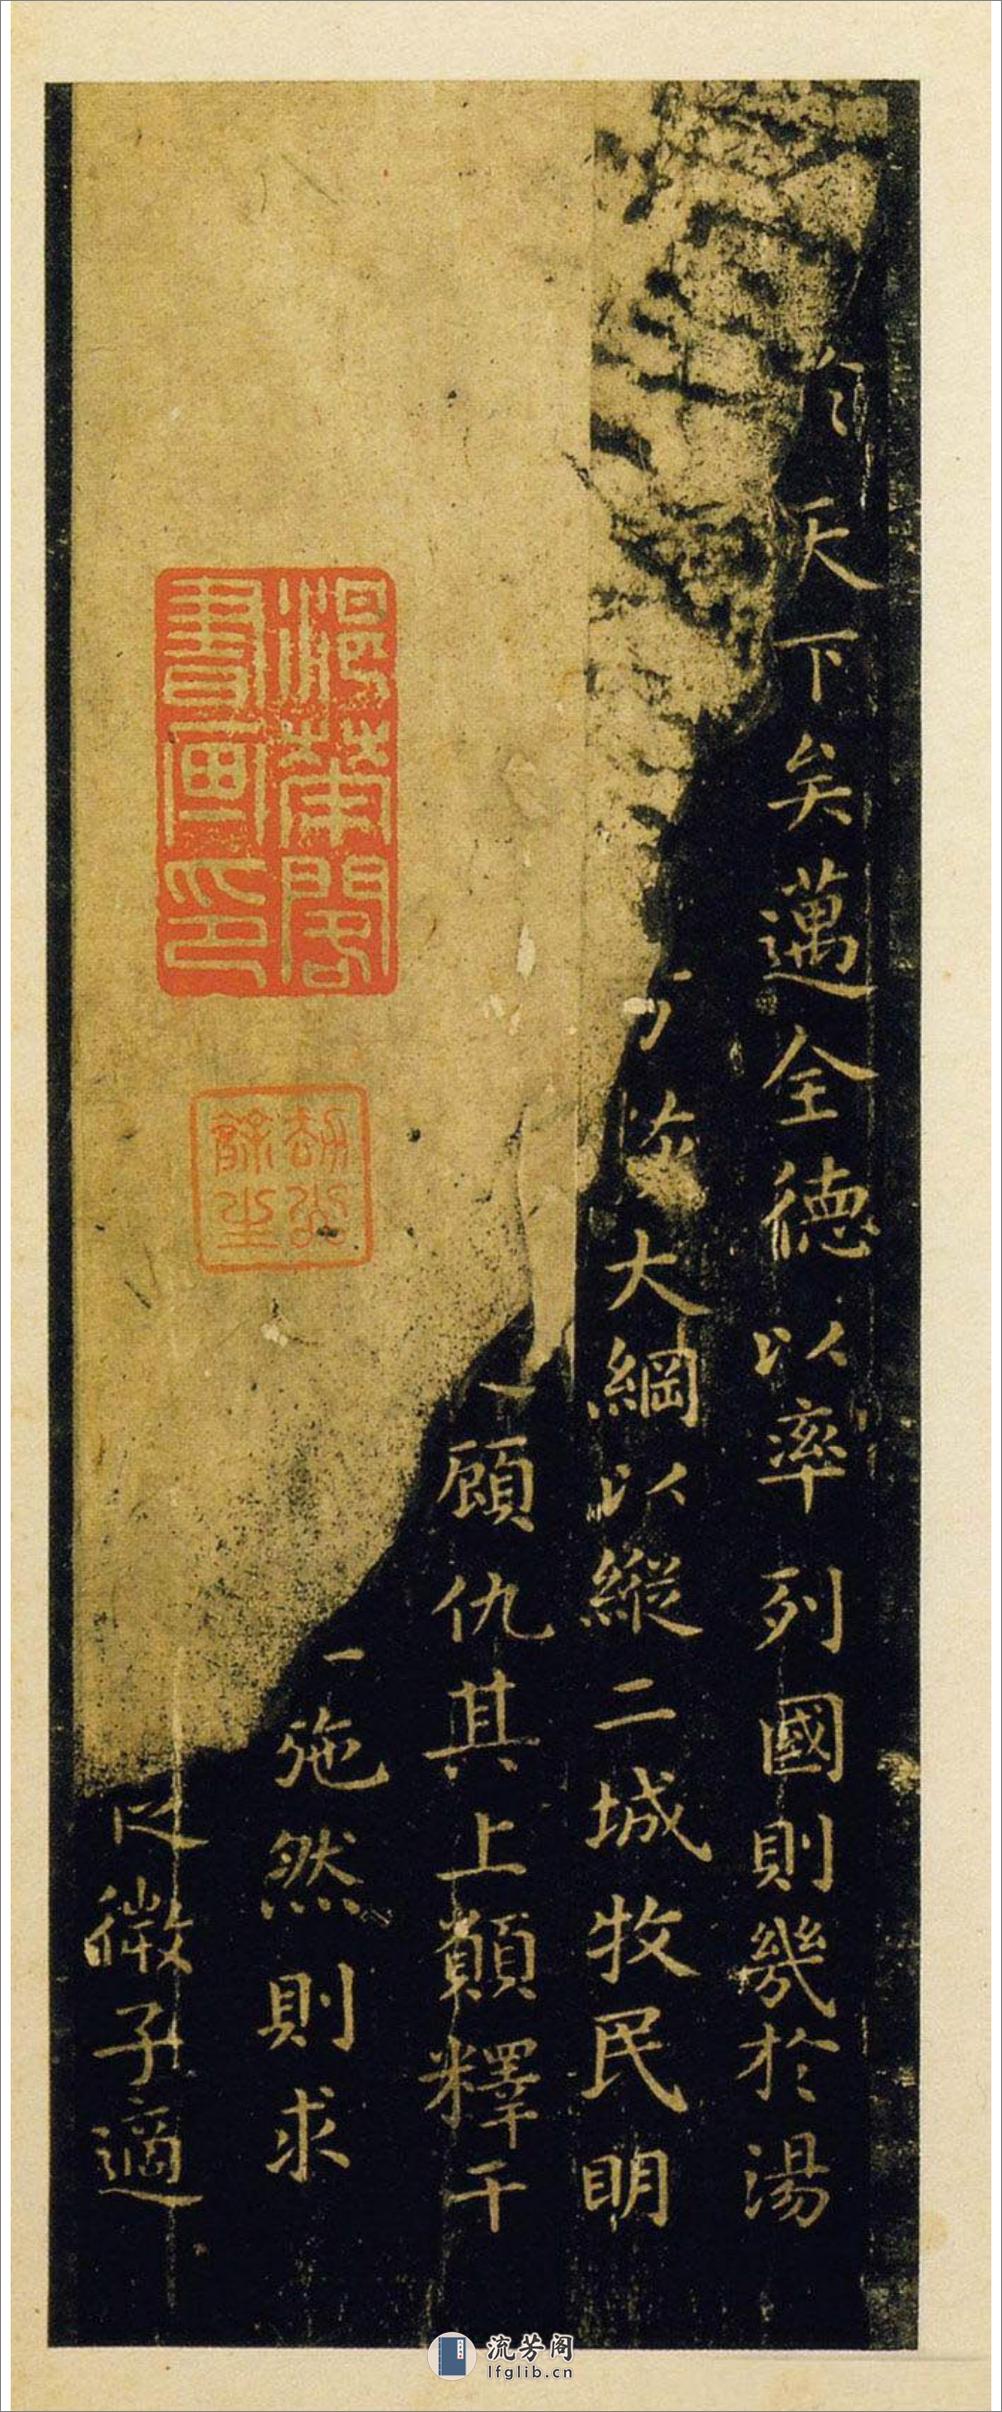 於天下矣邁全德以率列國則幾於湯
大綱以縱二城牧民明
顧仇其上願釋干
施然則求
以微子適
書畫印
閣
餘生
流芳阁
lfglib.cn